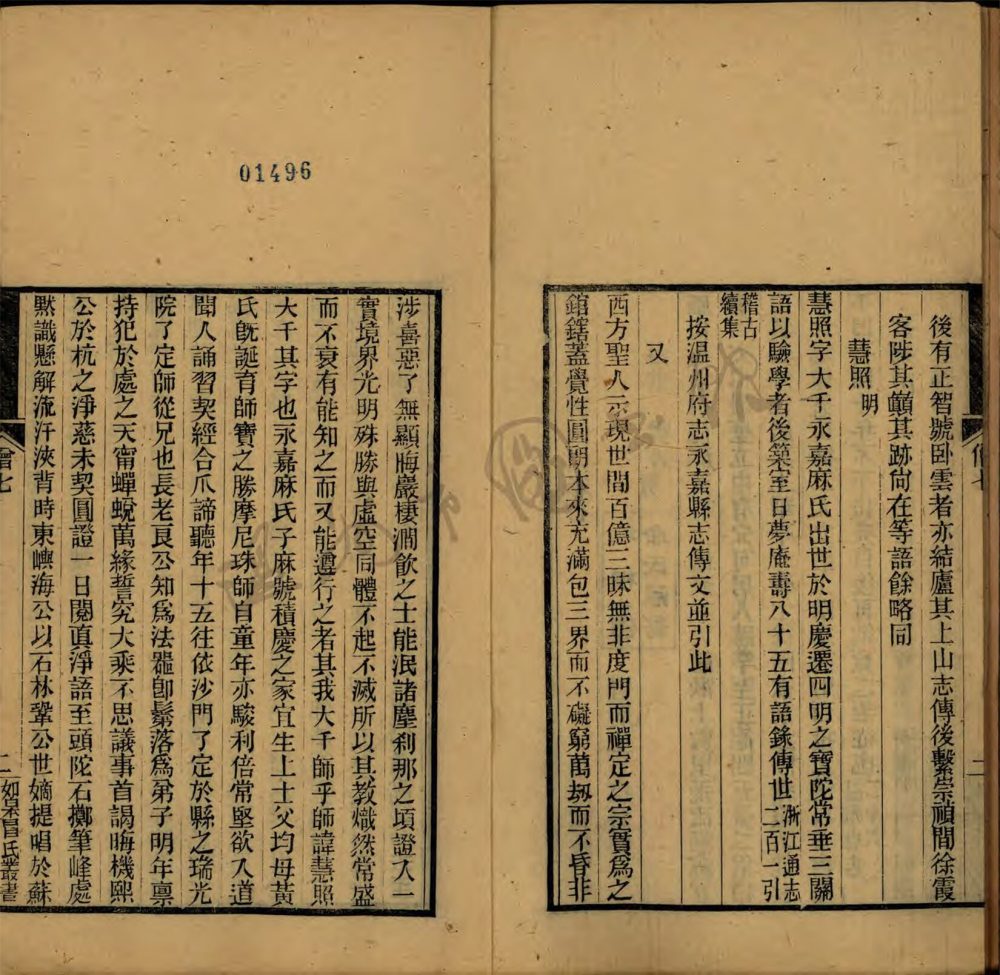 後有正智號卧雲者亦結廬其上山志傳後繫崇禎間徐霞
客陟其巓其跡尙在等語餘略同
慧照 明
慧照字大千永嘉麻氏出世於明慶遷四明之寶陀常垂三關
語以驗學者後築至日夢庵壽八十五有語錄傳世 浙江通志二百一引
稽古續集
按温州府志永嘉縣志傳文並引此
又
西方聖人示現世間百億三昧無非度門而禪定之宗實爲之
錧鎋蓋覺性圓明本來充滿包三界而不礙窮萬刼而不昏非
01496
涉喜惡了無顯晦巖棲澗飮之士能泯諸塵刹那之頃證入一
實境界光明殊勝與虛空同體不起不滅所以其敎熾然常盛
而不衰有能知之而又能遵行之者其我大千師乎師諱慧照
大千其字也永嘉麻氏子麻號積慶之家宜生上士父均母黃
氏旣誕育師寶之勝摩尼珠師自童年亦駿利倍常堅欲入道
聞人誦習契經合爪諦聽年十五往依沙門了定於縣之瑞光
院了定師從兄也長老良公知爲法器卽鬀落爲弟子明年禀
持犯於處之天甯蟬蛻萬緣誓究大乘不思議事首謁晦機熙
公於杭之淨慈未契圓證一日閱眞淨語至頭陀石擲筆峰處
默識懸解流汗浹背時東嶼海公以石林鞏公世嫡提唱於蘇
二